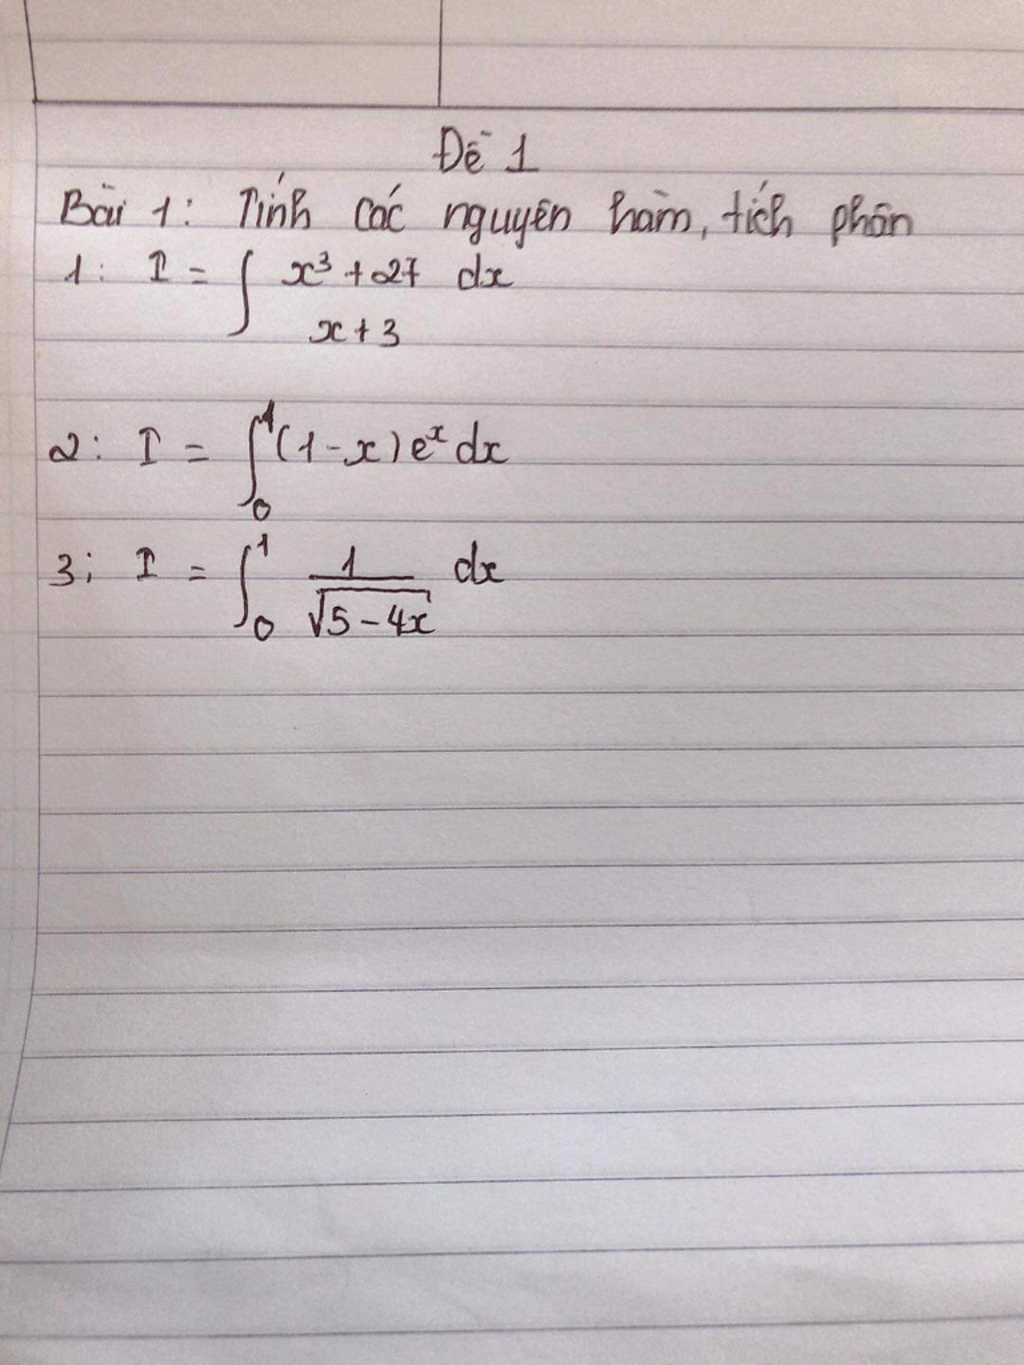 Đề 1
Bài 1: Tính các nguyên hàm, tích phân
1: I = ∫ x³ + 27 dx
x + 3
2: I = ∫₀¹ (1 - x) eˣ dx
3; I = ∫₀¹ 1/√(5 - 4x) dx